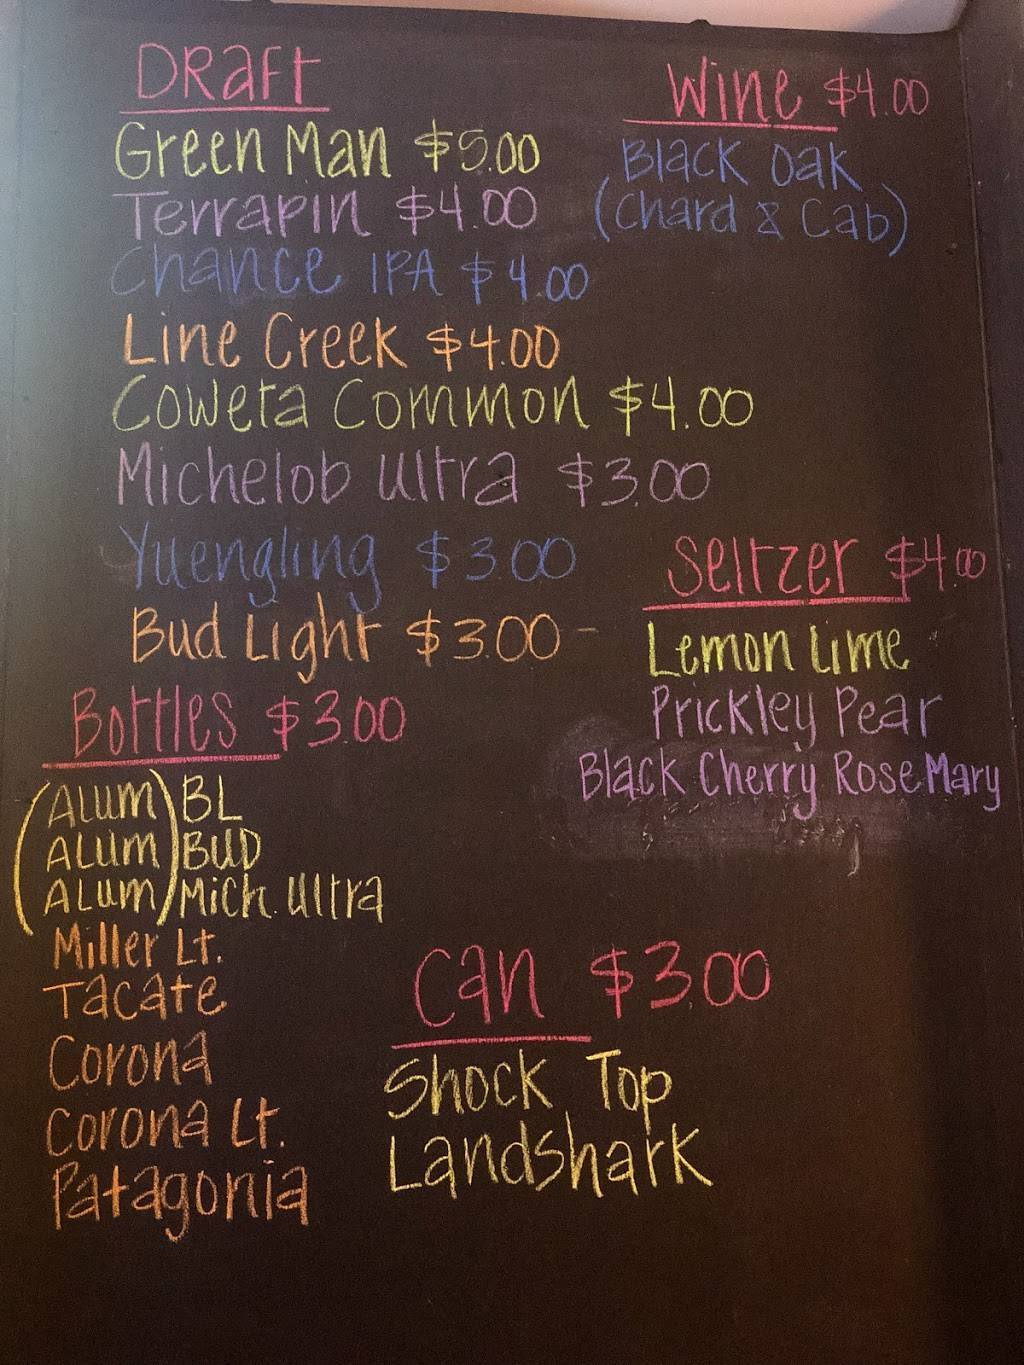 Draft
Green Man $5.00
Terrapin $4.00
Chance IPA $4.00
Line Creek $4.00
Coweta Common $4.00
Michelob Ultra $3.00
Yuengling $3.00
Bud Light $3.00 -
Wine $4.00
Black Oak
(Chard & Cab)
Seltzer $4.00
Lemon Lime
Prickley Pear
Black Cherry RoseMary
Bottles $3.00
(Alum) BL
(Alum) BUD
(Alum) Mich. Ultra
Miller Lt.
Tacate
Corona
Corona Lt.
Patagonia
Can $3.00
Shock Top
Landshark